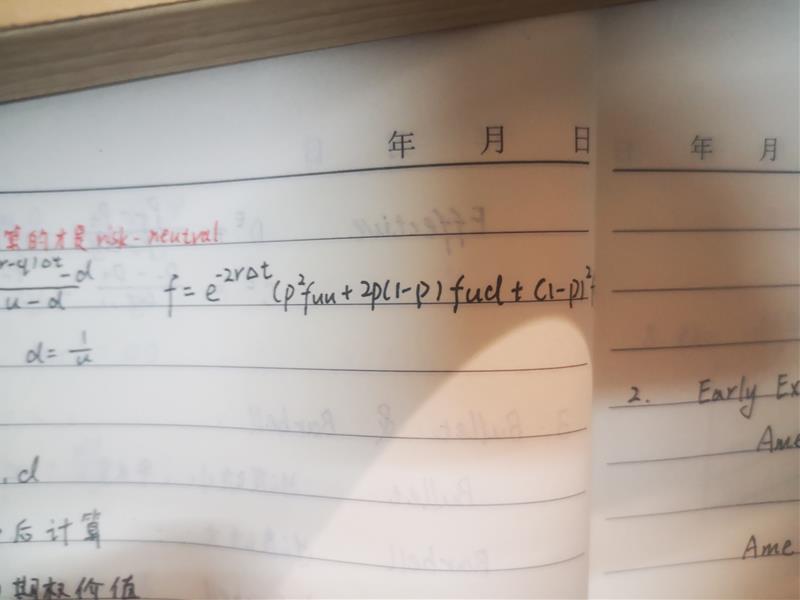 年 月 日
年 月
算的才是risk-neutral
r-q)Δt - d
u - d
f = e^{-2rΔt} (p²fuu + 2p(1-p) fud + (1-p)²
d = 1/u
, d
后计算
期权价值
2. Early Ex
Ame
Ame